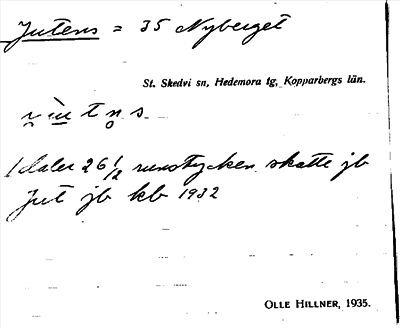 Jutens = 35 Nyberget
St. Skedvi sn, Hedemora tg, Kopparbergs län.
1 daler 26 1/2 runstycken skatte jb
Jut jb kb 1932
OLLE HILLNER, 1935.